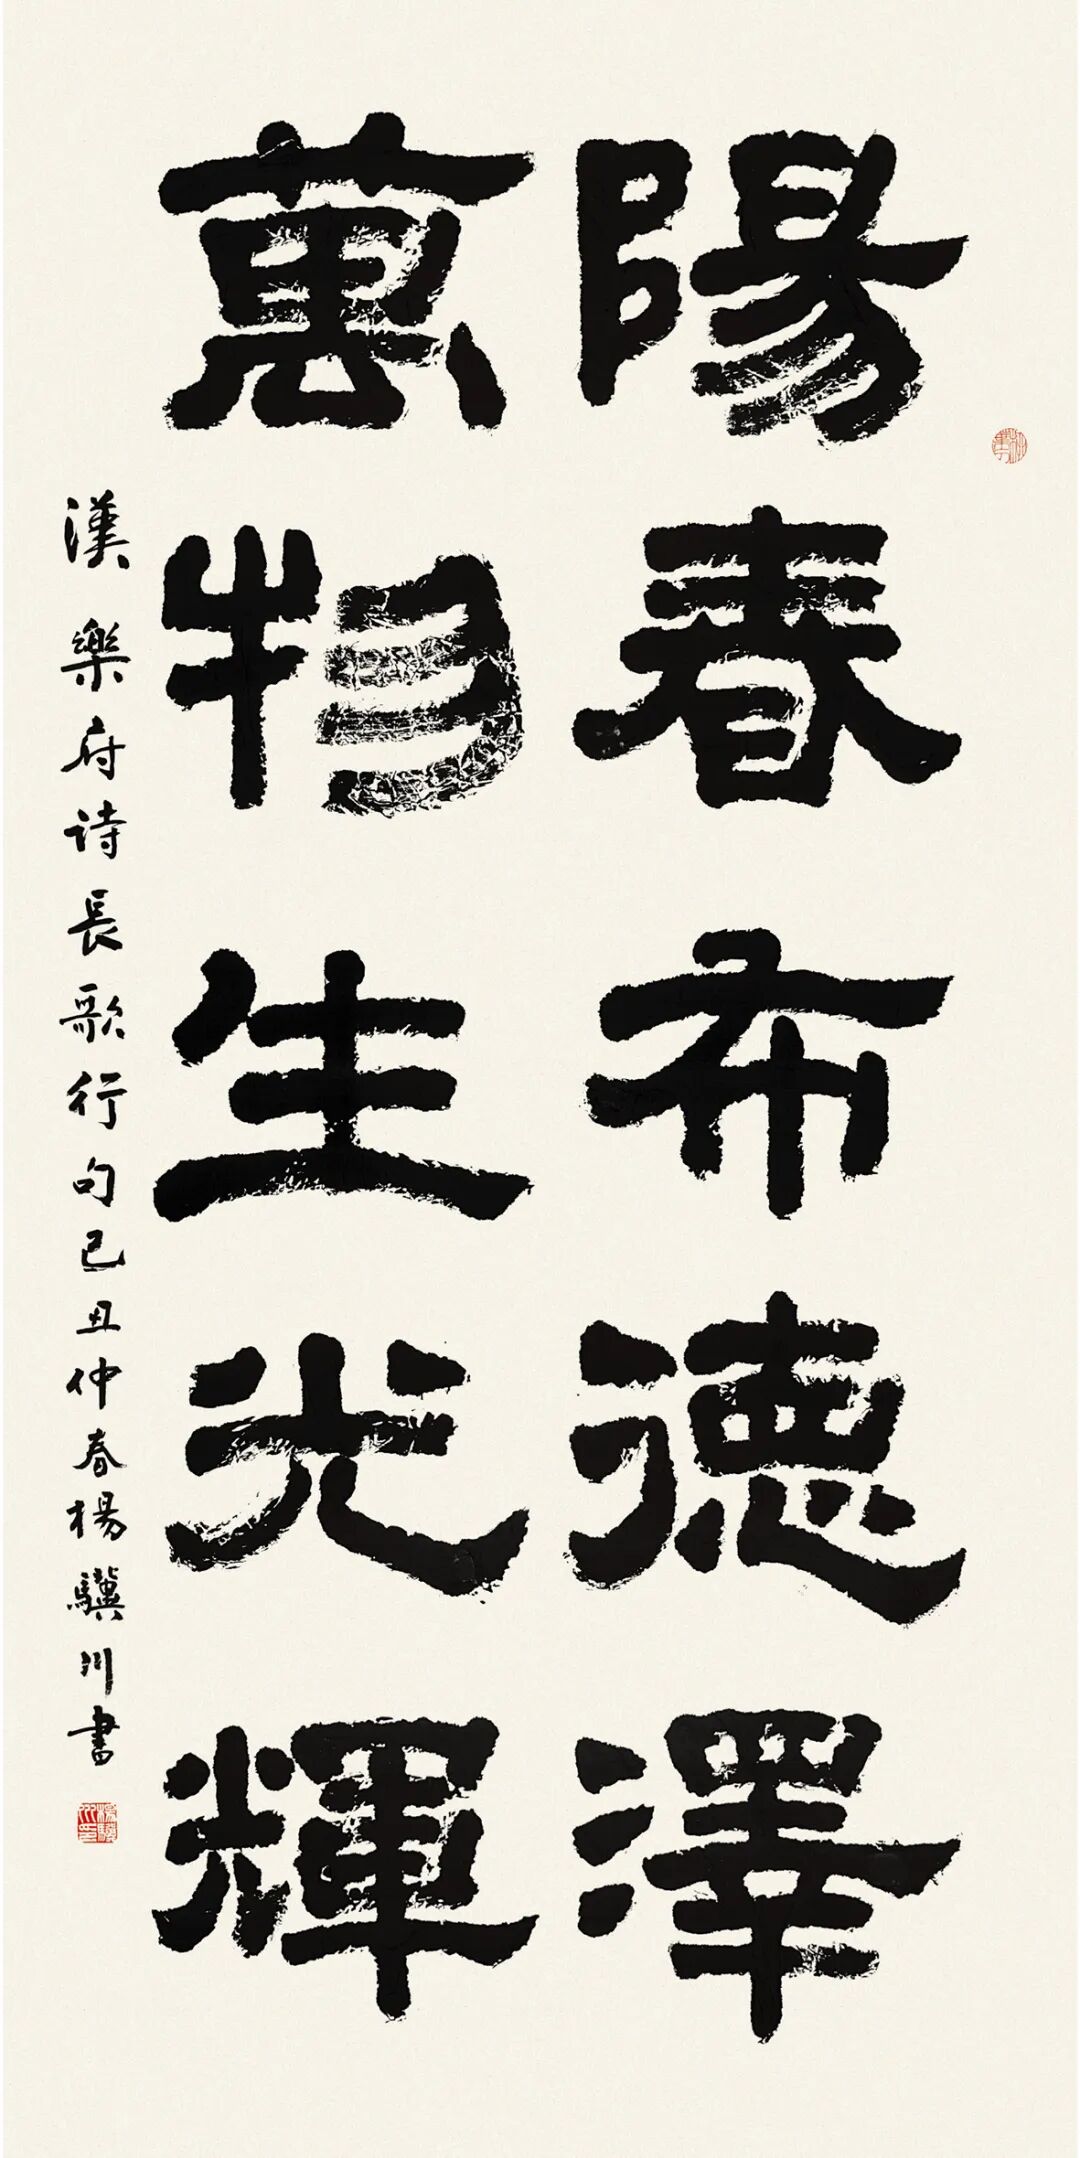 陽春布德澤
萬物生光輝
漢樂府诗長歌行句己丑仲春楊驥川書